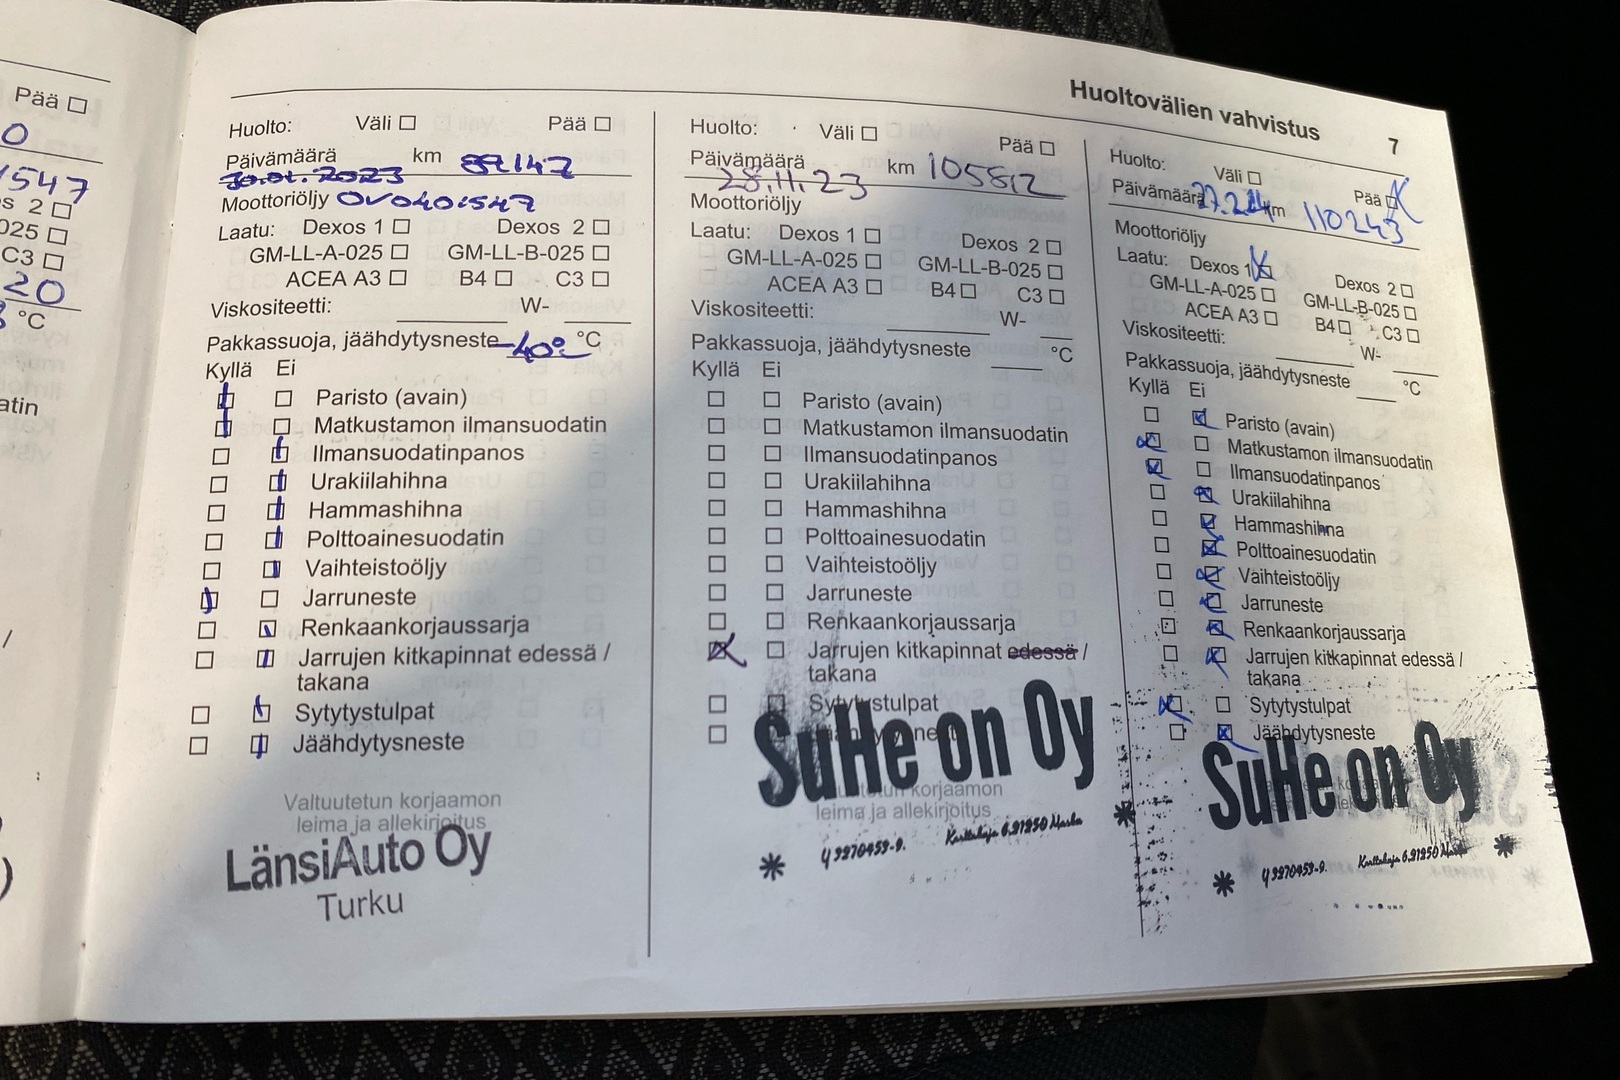 Pää
0
1547
s 2
025
C3
20
°C
atin
/
)
Huoltovälien vahvistus 7
Huolto: Väli Pää
Päivämäärä km 87147
30.01.2023
Moottoriöljy OV0401547
Laatu: Dexos 1 Dexos 2
GM-LL-A-025 GM-LL-B-025
ACEA A3 B4 C3
Viskositeetti: W-
Pakkassuoja, jäähdytysneste -40° °C
Kyllä Ei
Paristo (avain)
Matkustamon ilmansuodatin
Ilmansuodatinpanos
Urakiilahihna
Hammashihna
Polttoainesuodatin
Vaihteistoöljy
Jarruneste
Renkaankorjaussarja
Jarrujen kitkapinnat edessä /
takana
Sytytystulpat
Jäähdytysneste
Valtuutetun korjaamon
leima ja allekirjoitus
LänsiAuto Oy
Turku
Huolto: Väli Pää
Päivämäärä km 105812
28.11.23
Moottoriöljy
Laatu: Dexos 1 Dexos 2
GM-LL-A-025 GM-LL-B-025
ACEA A3 B4 C3
Viskositeetti: W-
Pakkassuoja, jäähdytysneste °C
Kyllä Ei
Paristo (avain)
Matkustamon ilmansuodatin
Ilmansuodatinpanos
Urakiilahihna
Hammashihna
Polttoainesuodatin
Vaihteistoöljy
Jarruneste
Renkaankorjaussarja
Jarrujen kitkapinnat edessä /
takana
Sytytystulpat
SuHe on Oy
korjaamon
leima ja allekirjoitus
Y 3270459-9. Karttakuja 6, 21250 Masku
Huolto: Väli Pää
Päivämäärä 27.2.24 km 110243
Moottoriöljy
Laatu: Dexos 1 Dexos 2
GM-LL-A-025 GM-LL-B-025
ACEA A3 B4 C3
Viskositeetti: W-
Pakkassuoja, jäähdytysneste °C
Kyllä Ei
Paristo (avain)
Matkustamon ilmansuodatin
Ilmansuodatinpanos
Urakiilahihna
Hammashihna
Polttoainesuodatin
Vaihteistoöljy
Jarruneste
Renkaankorjaussarja
Jarrujen kitkapinnat edessä /
takana
Sytytystulpat
Jäähdytysneste
SuHe on Oy
Y 3270459-9. Karttakuja 6, 21250 Masku